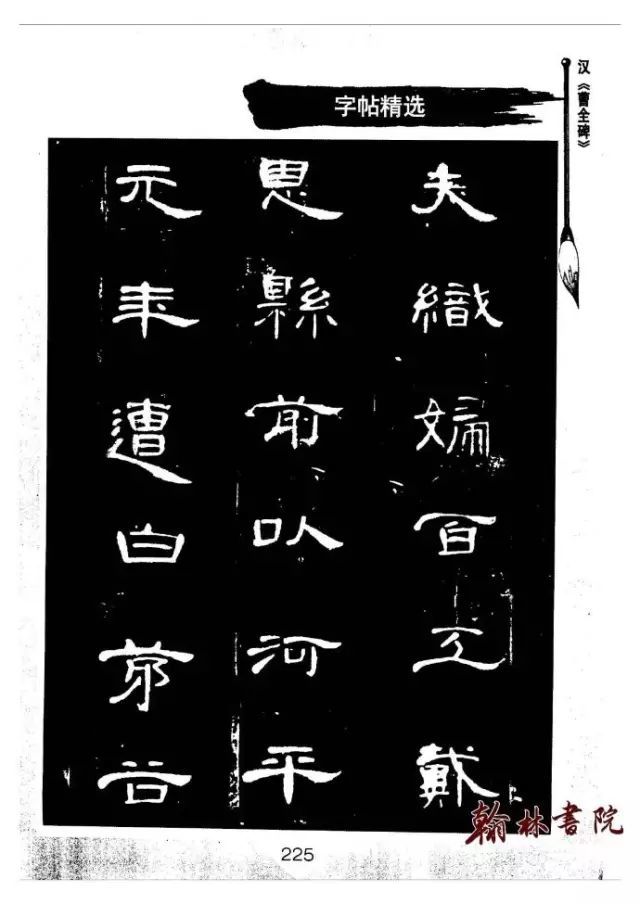 字帖精选
汉《曹全碑》
夫織婦百工戴
恩縣前以河平
元年遭白茅谷
翰林书院
225